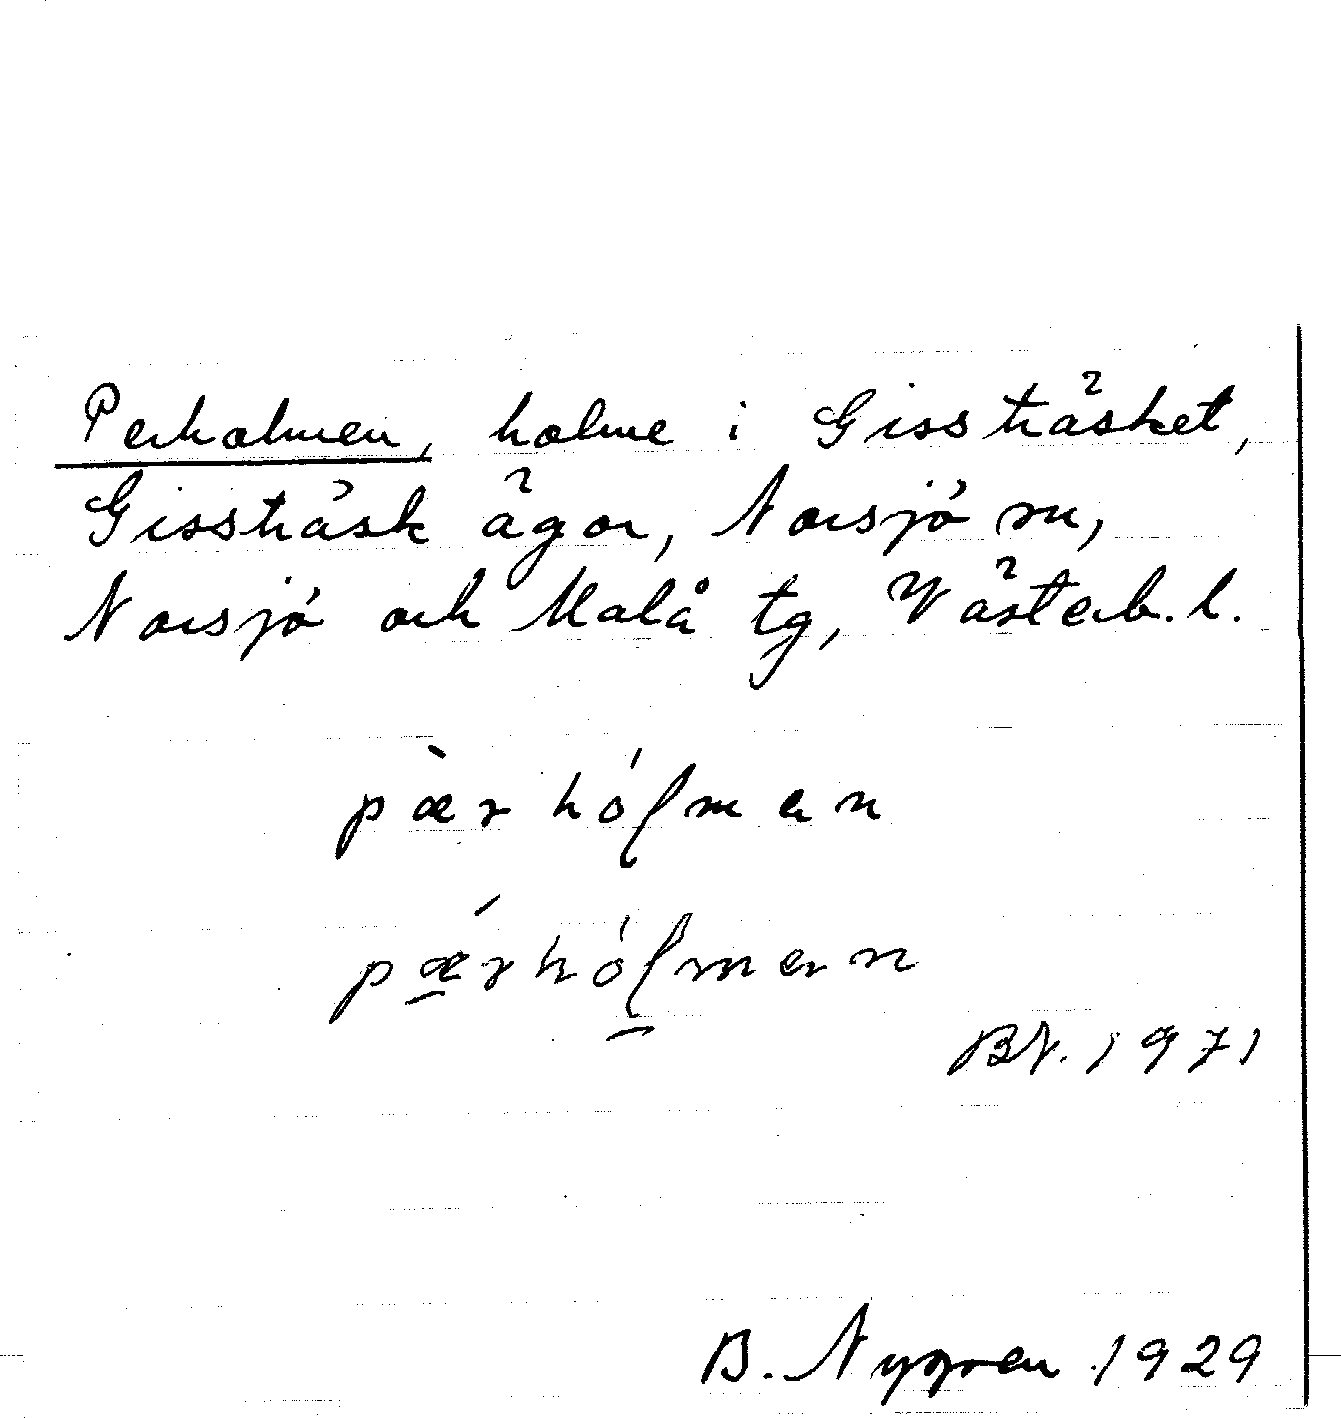 Perholmen, holme i Gissträsket,
Gissträsk ägor, Norsjö sn,
Norsjö och Malå tg, Västerb. l.
pæ̀rhóɭmen
pǽrhóɭmen
BN. 1971
B. Nygren 1929